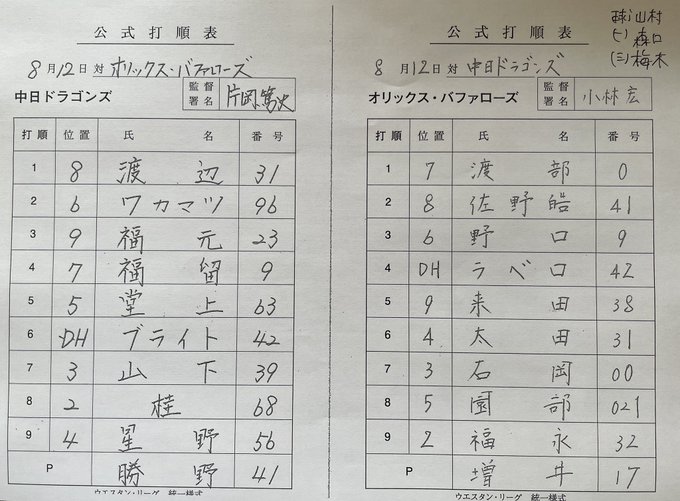 公式打順表
8月12日対 オリックス・バファローズ
中日ドラゴンズ 監督署名 片岡篤史
打順 位置 氏名 番号
1 8 渡辺 31
2 6 ワカマツ 96
3 9 福元 23
4 7 福留 9
5 5 堂上 63
6 DH ブライト 42
7 3 山下 39
8 2 桂 68
9 4 星野 56
P 勝野 41
ウエスタン・リーグ 統一様式
球)山村
(一)森口
(三)梅木
公式打順表
8月12日対 中日ドラゴンズ
オリックス・バファローズ 監督署名 小林宏
打順 位置 氏名 番号
1 7 渡部 0
2 8 佐野皓 41
3 6 野口 9
4 DH ラベロ 42
5 9 来田 38
6 4 太田 31
7 3 石岡 00
8 5 園部 021
9 2 福永 32
P 増井 17
ウエスタン・リーグ 統一様式